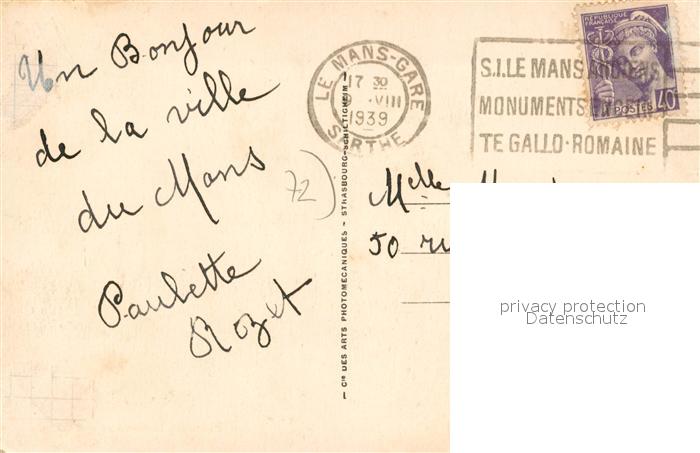 Un Bonjour
de la ville
du Mans
Paulette
Rozet
72)
LE MANS-GARE
17 30
9 VIII
1939
SARTHE
RÉPUBLIQUE
FRANÇAISE
POSTES
40
S.I. LE MANS
MONUMENTS
TE GALLO-ROMAINE
— Cie DES ARTS PHOTOMECANIQUES — STRASBOURG-SCHILTIGHEIM —
Melle
50 ru
privacy protection
Datenschutz